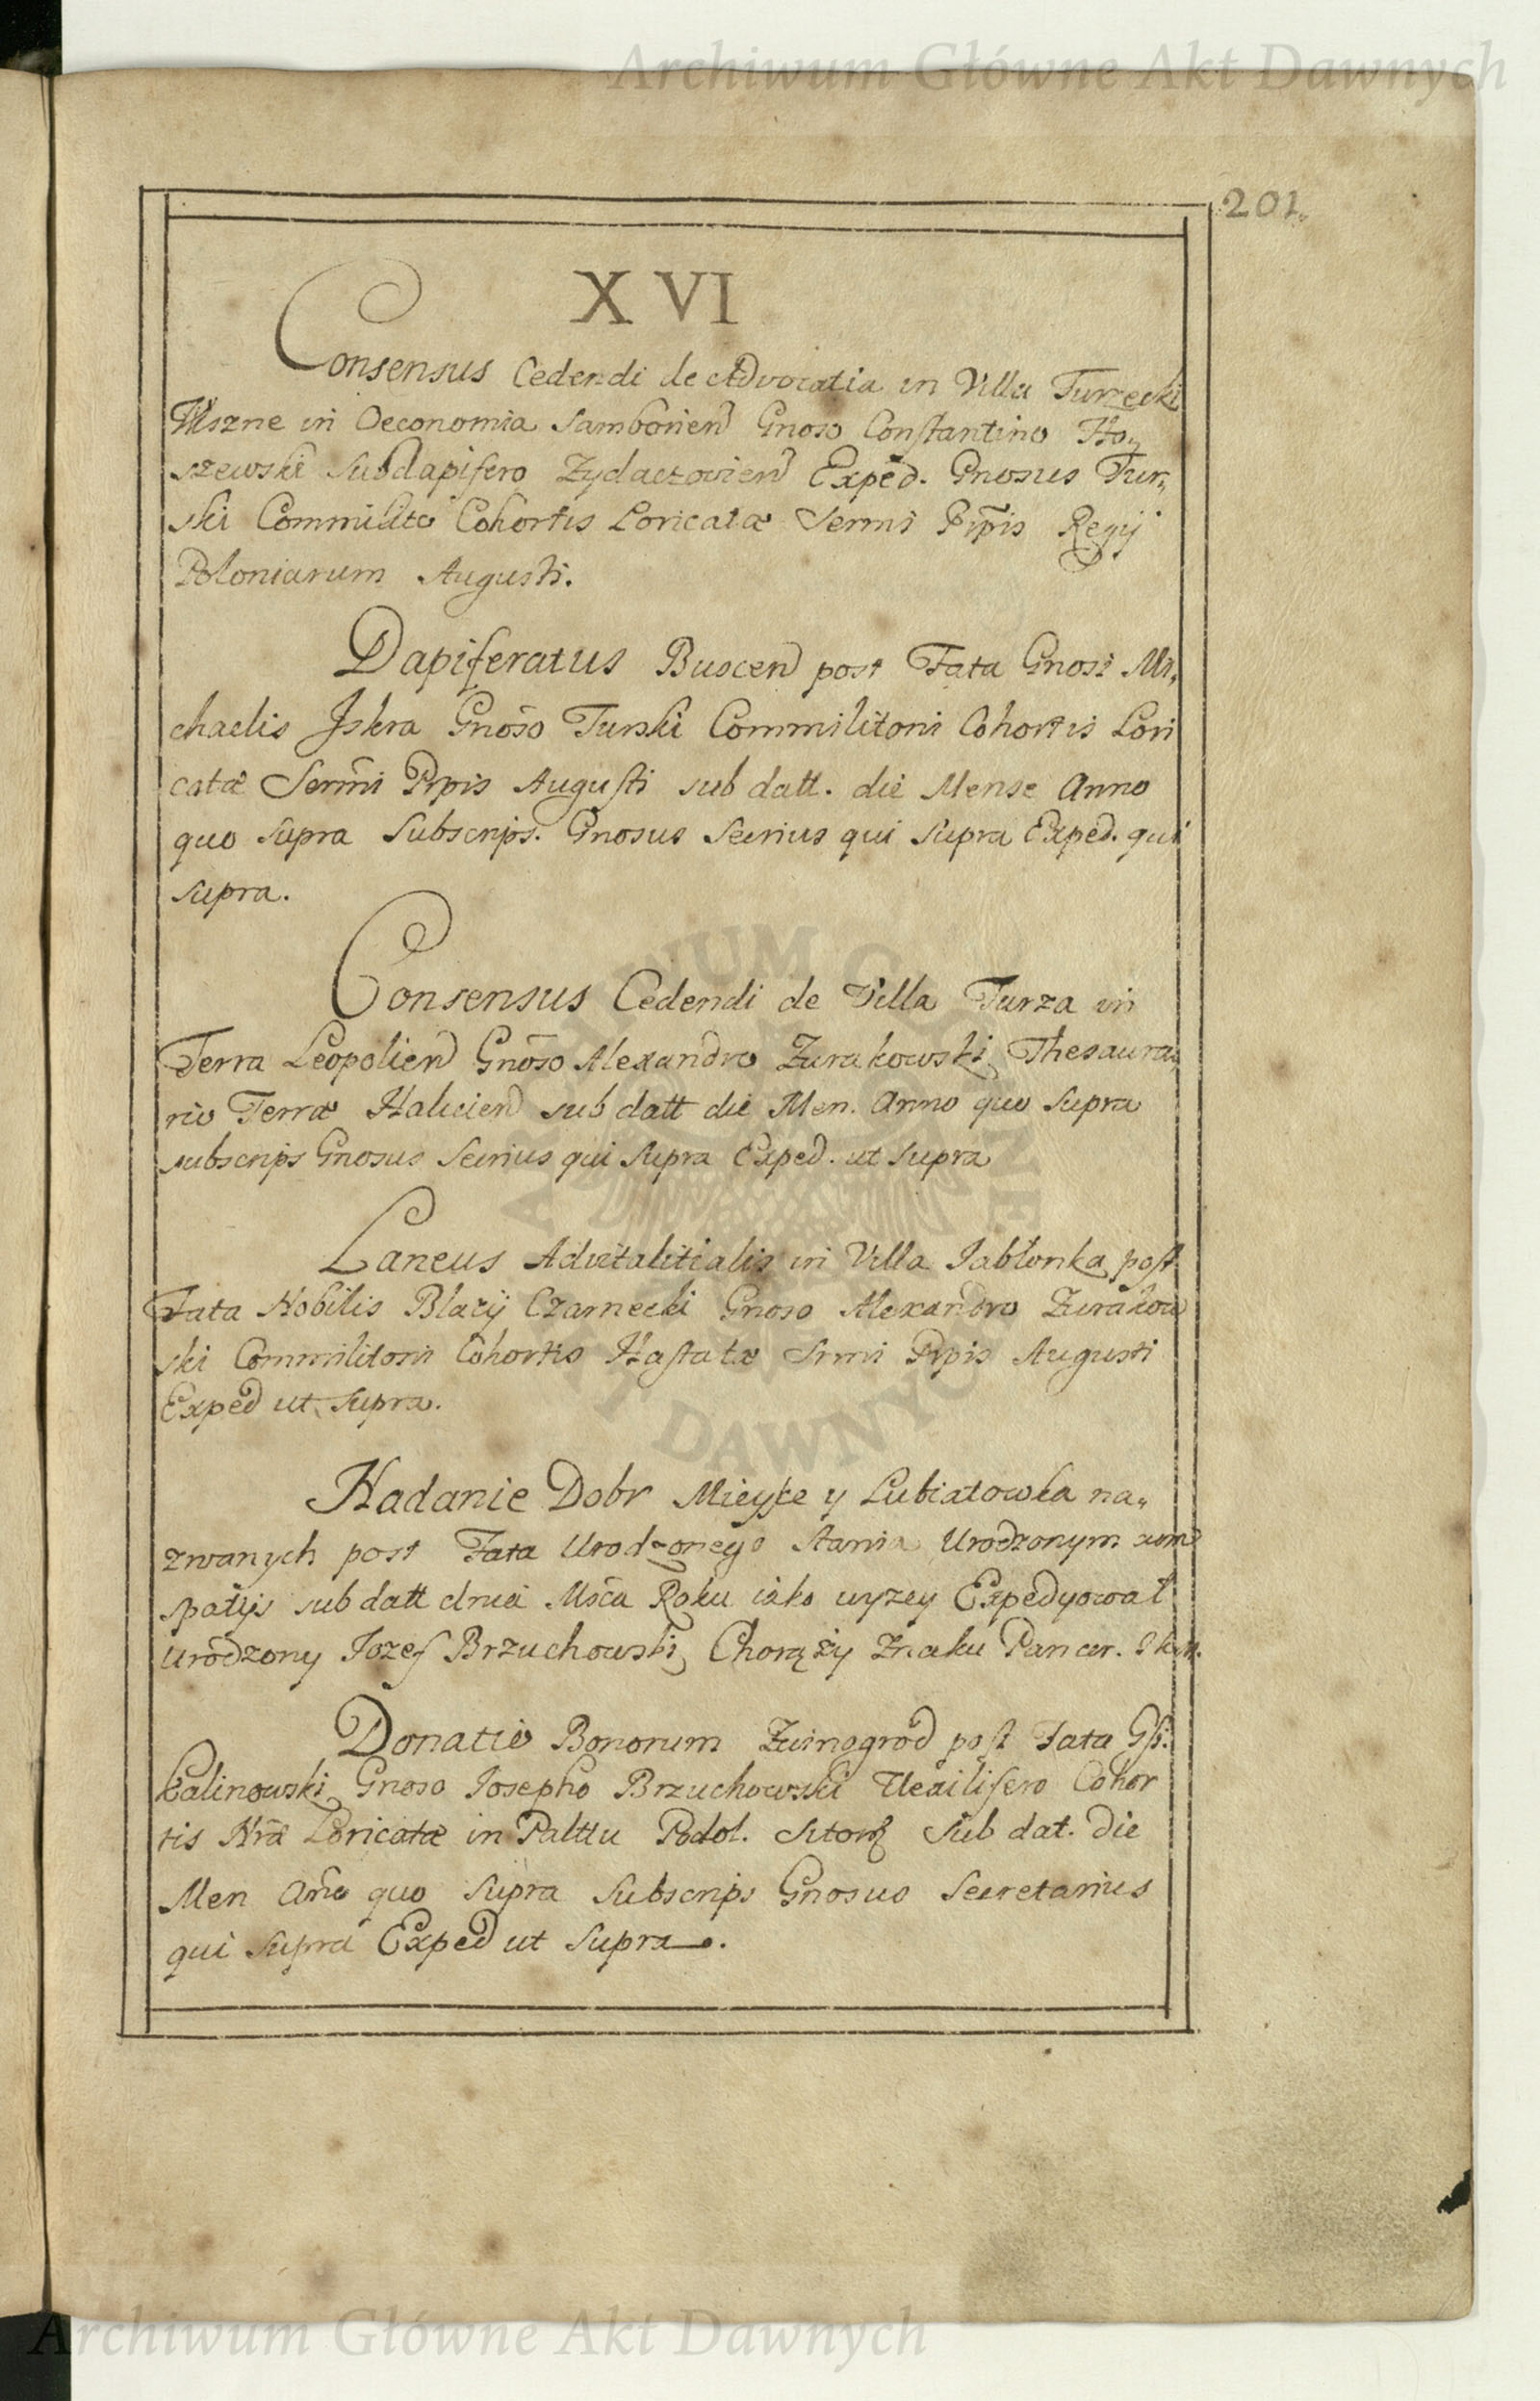 Archiwum Główne Akt Dawnych
201.
XVI
Consensus Cedendi de Advocatia in Villa Turzecki
Wszne in Oeconomia Samborien Gnoso Constantino Ho„
szewski Subdapifero Zydaczovien Exped. Gnosus Tur„
ski Commilito Cohortis Loricatæ Sermi Prpis Regij
Poloniarum Augusti.
Dapiferatus Buscen post Fata Gnosi Mi„
chaelis Jskra Gnoso Turski Commilitoni Cohortis Lori
catæ Sermi Prpis Augusti sub datt. die Mense Anno
quo supra Subscrips. Gnosus Secrius qui supra Exped. qui
supra.
Consensus Cedendi de Villa Turza in
Terra Leopolien Gnoso Alexandro Zurakowski Thesaura„
rio Terræ Halicien sub datt die Men. Anno quo supra
subscrips Gnosus Secrius qui supra Exped. ut supra
Laneus Advitalitialis in Villa Jabłonka post
Fata Nobilis Blazij Czarnecki Gnoso Alexandro Zurakow
ski Commilitoni Cohortis Hastatæ Srmi Prpis Augusti
Exped ut supra.
Nadanie Dobr Mieysce y Lubiatowka na„
zwanych post Fata Urodzonego Urodzonym
sub datt dnia Msca Roku iako wyzey Expedyował
Urodzony Jozef Brzuchowski Chorąży Znaku Pancer.
Donatio Bonorum Zwinogrod post Fata Gsi.
Kalinowski Gnoso Josepho Brzuchowski Vexilifero Cohor
tis Nræ Loricatæ in Palttu Podol. Sub dat. Die
Men Año quo supra Subscrips Gnosus Secretarius
qui supra Exped ut supra.
ARCHIWUM GŁÓWNE AKT DAWNYCH
Archiwum Główne Akt Dawnych